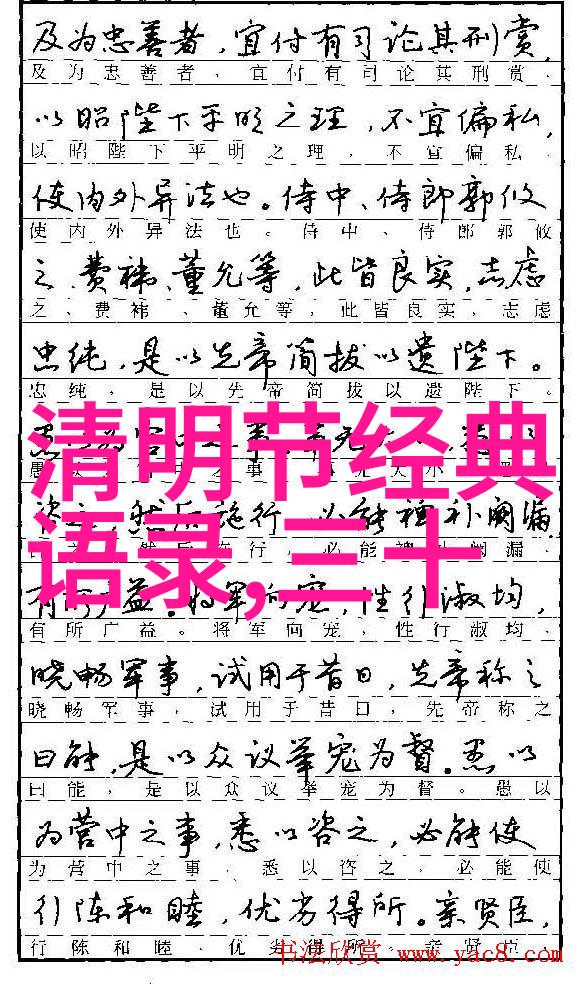 及为忠善者，宜付有司论其刑赏，
及为忠善者，宜付有司论其刑赏，
以昭陛下平明之理，不宜偏私，
以昭陛下平明之理，不宜偏私，
使内外异法也。侍中、侍郎郭攸
使内外异法也。侍中、侍郎郭攸
之、费祎、董允等，此皆良实，志虑
之、费祎、董允等，此皆良实，志虑
忠纯，是以先帝简拔以遗陛下。
忠纯，是以先帝简拔以遗陛下。
清明节经典
语录,三十
必能裨补阙漏
有所广益。将军向宠，性行淑均，
有所广益。将军向宠，性行淑均，
晓畅军事，试用于昔日，先帝称之
晓畅军事，试用于昔日，先帝称之
曰能，是以众议举宠为督。愚以
曰能，是以众议举宠为督。愚以
为营中之事，悉以咨之，必能使
为营中之事，悉以咨之，必能使
行陈和睦，优劣得所。亲贤臣，
行陈和睦，优劣得所。亲贤臣，
书法欣赏 www.yac8.com